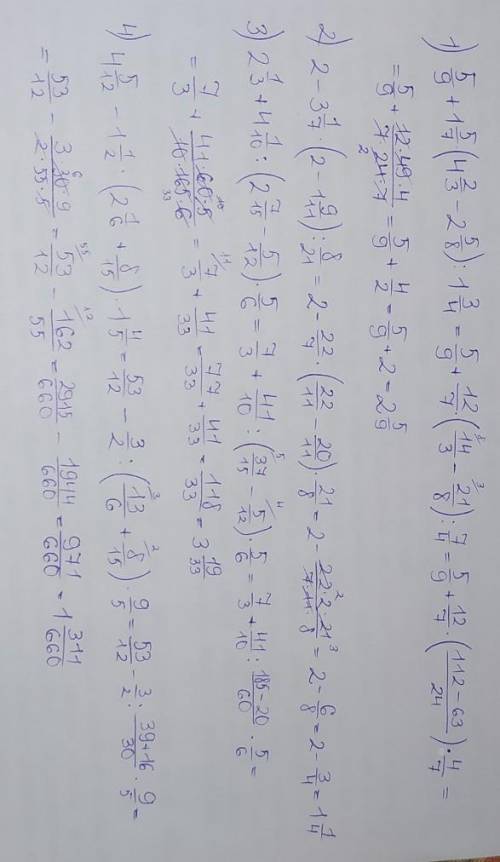 1) 5/9 + 1 5/7 (4 2/3 - 2 5/8) : 1 3/4 = 5/9 + 12/7 · (14/3 - 21/8) : 7/4 = 5/9 + 12/7 · (112-63/24) · 4/7 =
= 5/9 + 12·49·4/7·24·7 = 5/9 + 4/2 = 5/9 + 2 = 2 5/9
2) 2 - 3 1/7 (2 - 1 9/11) : 8/21 = 2 - 22/7 · (22/11 - 20/11) · 21/8 = 2 - 22·2·21/7·11·8 = 2 - 6/8 = 2 - 3/4 = 1 1/4
3) 2 1/3 + 4 1/10 : (2 7/15 - 5/12) · 5/6 = 7/3 + 41/10 : (37/15 - 5/12) · 5/6 = 7/3 + 41/10 : 185-20/60 · 5/6 =
= 7/3 + 41·60·5/10·165·6 = 7/3 + 41/33 = 77/33 + 41/33 = 118/33 = 3 19/33
4) 4 5/12 - 1 1/2 : (2 1/6 + 8/15) · 1 4/5 = 53/12 - 3/2 : (13/6 + 8/15) · 9/5 = 53/12 - 3/2 : 39+16/30 · 9/5 =
= 53/12 - 3·30·9/2·55·5 = 53/12 - 162/55 = 2915/660 - 1944/660 = 971/660 = 1 311/660